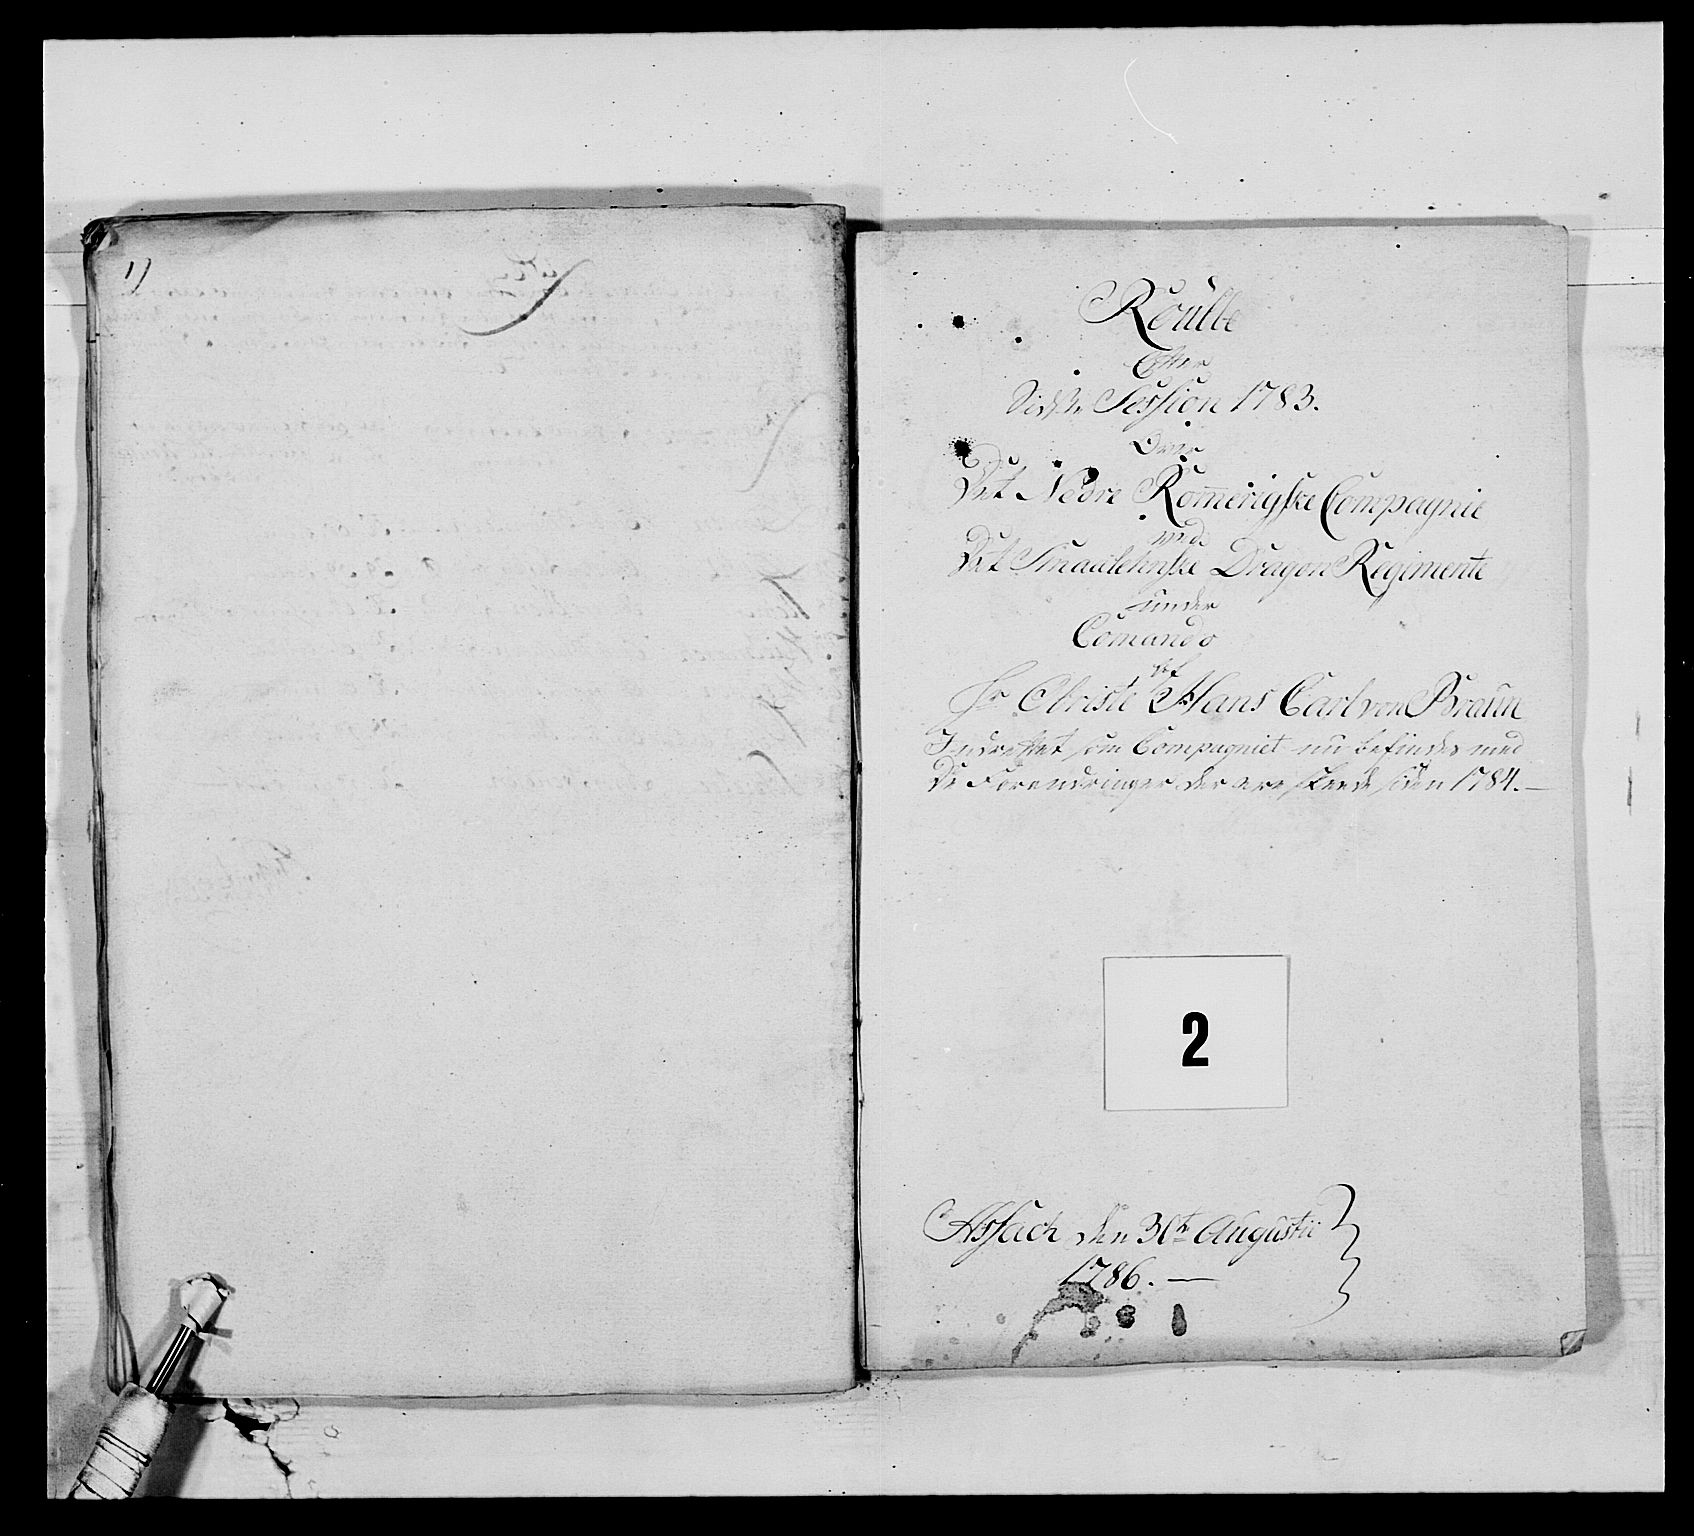 1)
Roulle
Efter
Sidste Session 1783.
Over
Det Nedre Romerigske Compagnie
ved
Det Smaalehnske Dragon Regimente
under
Comando
af
Hr Obriste Hans Carl von Braun
Indrettet som Compagniet nu befindes med
De Forandringer der ere skeede siden 1784.—
2
Assach den 30te Augustii
1786. —